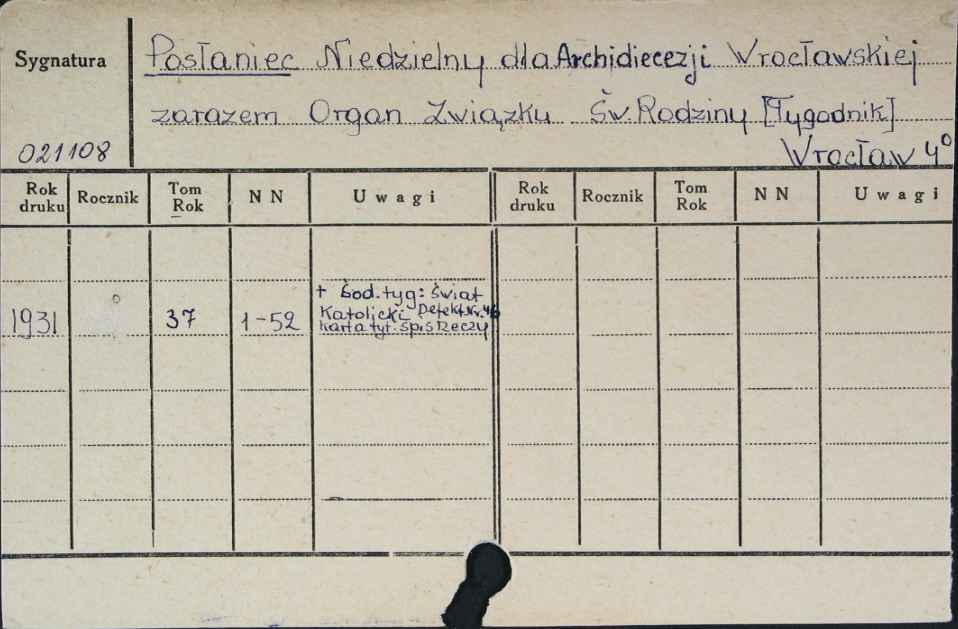 Sygnatura
Posłaniec Niedzielny dla Archidiecezji Wrocławskiej
zarazem Organ Związku Św. Rodziny [Tygodnik]
021108
Wrocław 4°
Rok druku Rocznik Tom Rok N N Uwagi Rok druku Rocznik Tom Rok N N Uwagi
+ Dod. tyg: Świat
Katolicki Defekt Nr. 46
1931 37 1-52 karta tyt. spis rzeczy